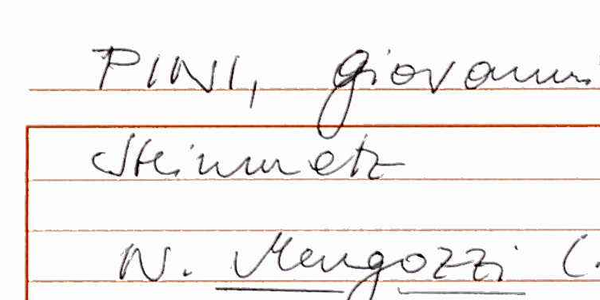 PINI, Giovanni
Steinmetz
N. Mengozzi (.